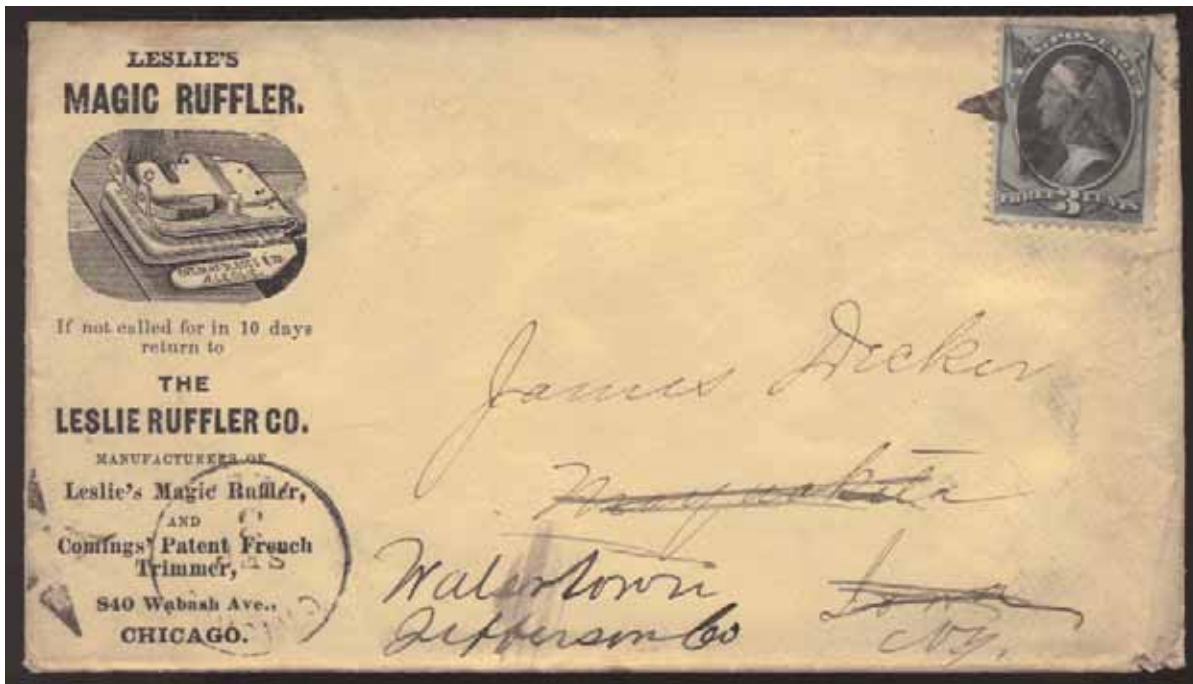 LESLIE'S
MAGIC RUFFLER.
If not called for in 10 days
return to
THE
LESLIE RUFFLER CO.
MANUFACTURERS OF
Leslie's Magic Ruffler,
AND
Comings' Patent French
Trimmer,
840 Wabash Ave.,
CHICAGO.
POSTAGE
THREE 3 CENTS
James Decker
Iowa
Watertown
Jefferson Co
NY.